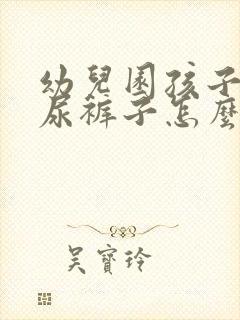 幼兒園孩子
尿褲子怎麼
吳寶玲